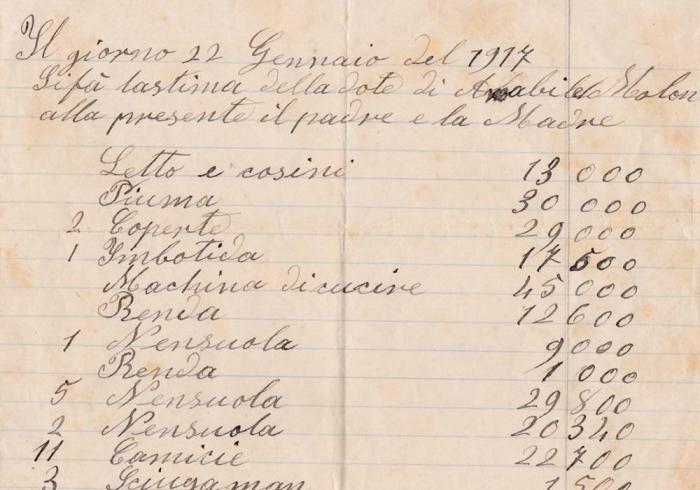 Il giorno 22 Gennaio del 1917
Si fà lastima della dote di Amabile Molon
alla presente il padre e la Madre
Letto e cosini 13 000
Piuma 30 000
2 Coperte 29 000
1 Imbotida 17 500
Machina di cucire 45 000
Renda 12 600
1 Nensuola 9 000
Renda 1 000
5 Nensuola 29 800
2 Nensuola 20 340
11 Camicie 22 700
3 Sciugaman 1 500